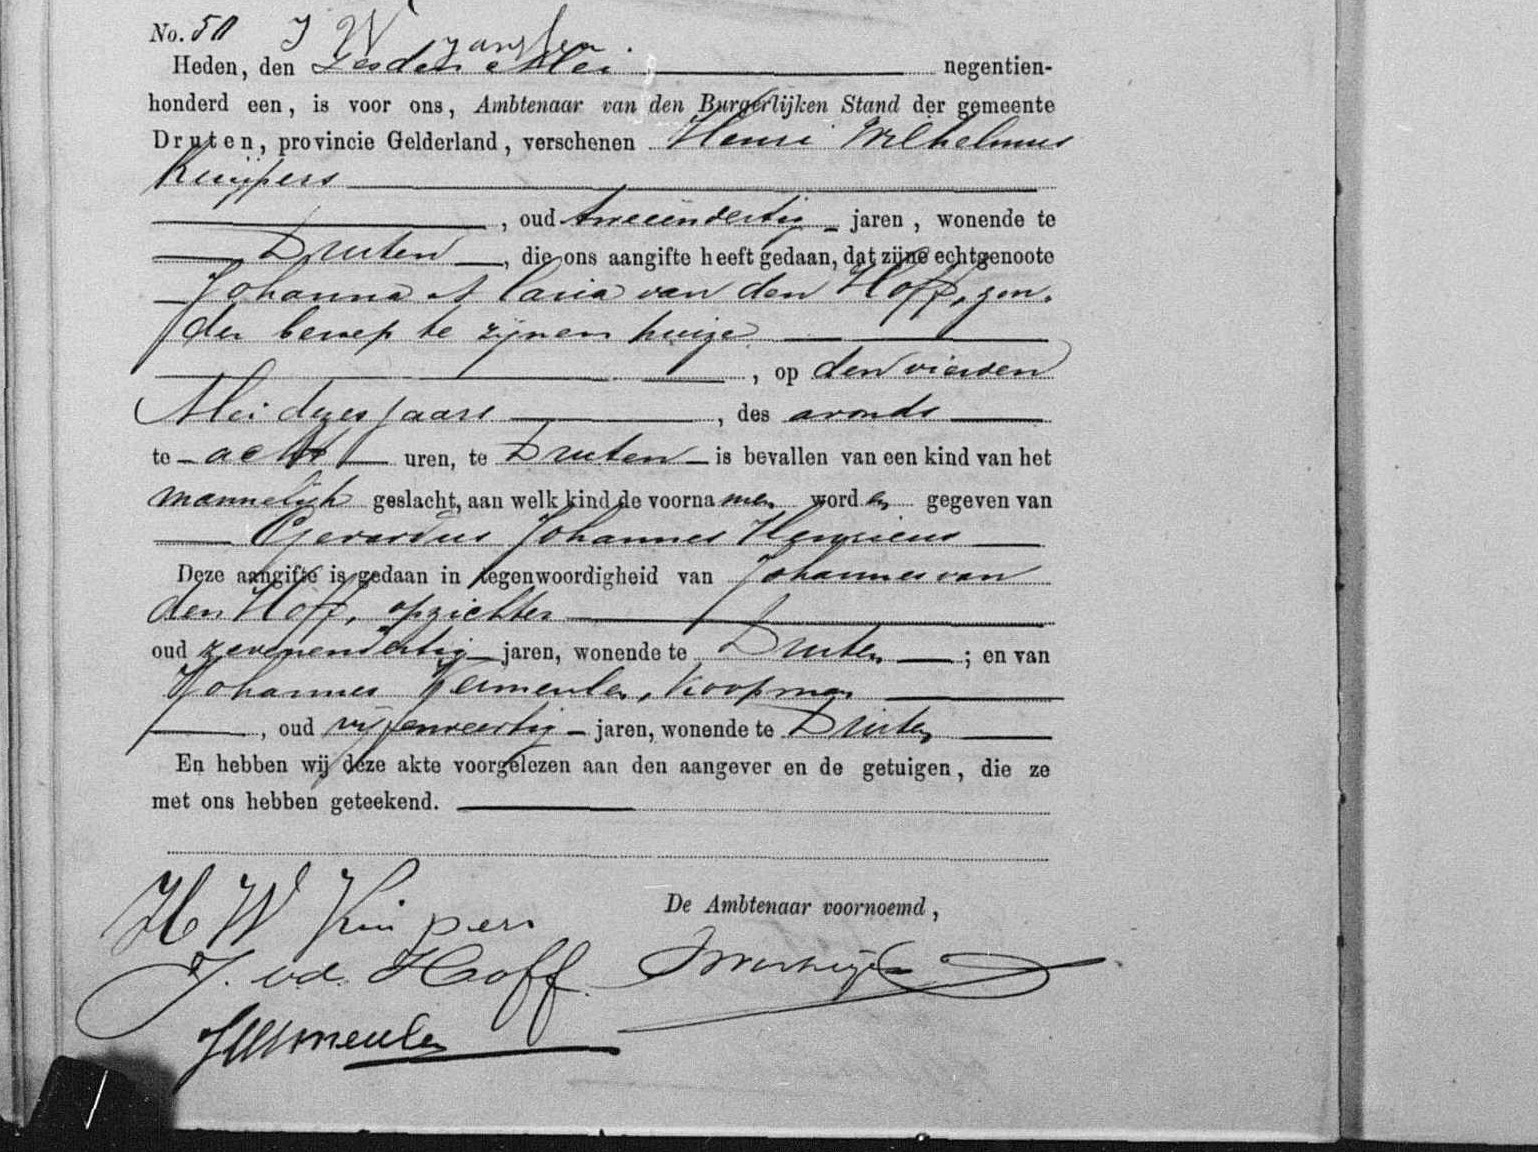 No. 50
J W Janssen.
Heden, den Zesden Mei negentien-
honderd een, is voor ons, Ambtenaar van den Burgerlijken Stand der gemeente
Druten, provincie Gelderland, verschenen Henri Wilhelmus
Kuijpers
, oud tweeendertig jaren, wonende te
Druten, die ons aangifte heeft gedaan, dat zijne echtgenoote
Johanna Maria van den Hoff, zon-
der beroep te zijnen huize
, op den vierden
Mei dezes jaars, des avonds
te acht uren, te Druten is bevallen van een kind van het
mannelijk geslacht, aan welk kind de voornamen worden gegeven van
Gerardus Johannes Henricus
Deze aangifte is gedaan in tegenwoordigheid van Johannes van
den Hoff, opzichter
oud zevenendertig jaren, wonende te Druten; en van
Johannes Vermeulen, koopman
, oud vijfenveertig jaren, wonende te Druten
En hebben wij deze akte voorgelezen aan den aangever en de getuigen, die ze
met ons hebben geteekend.
H W Kuijpers
De Ambtenaar voornoemd,
J. v.d. Hoff
JVermeulen